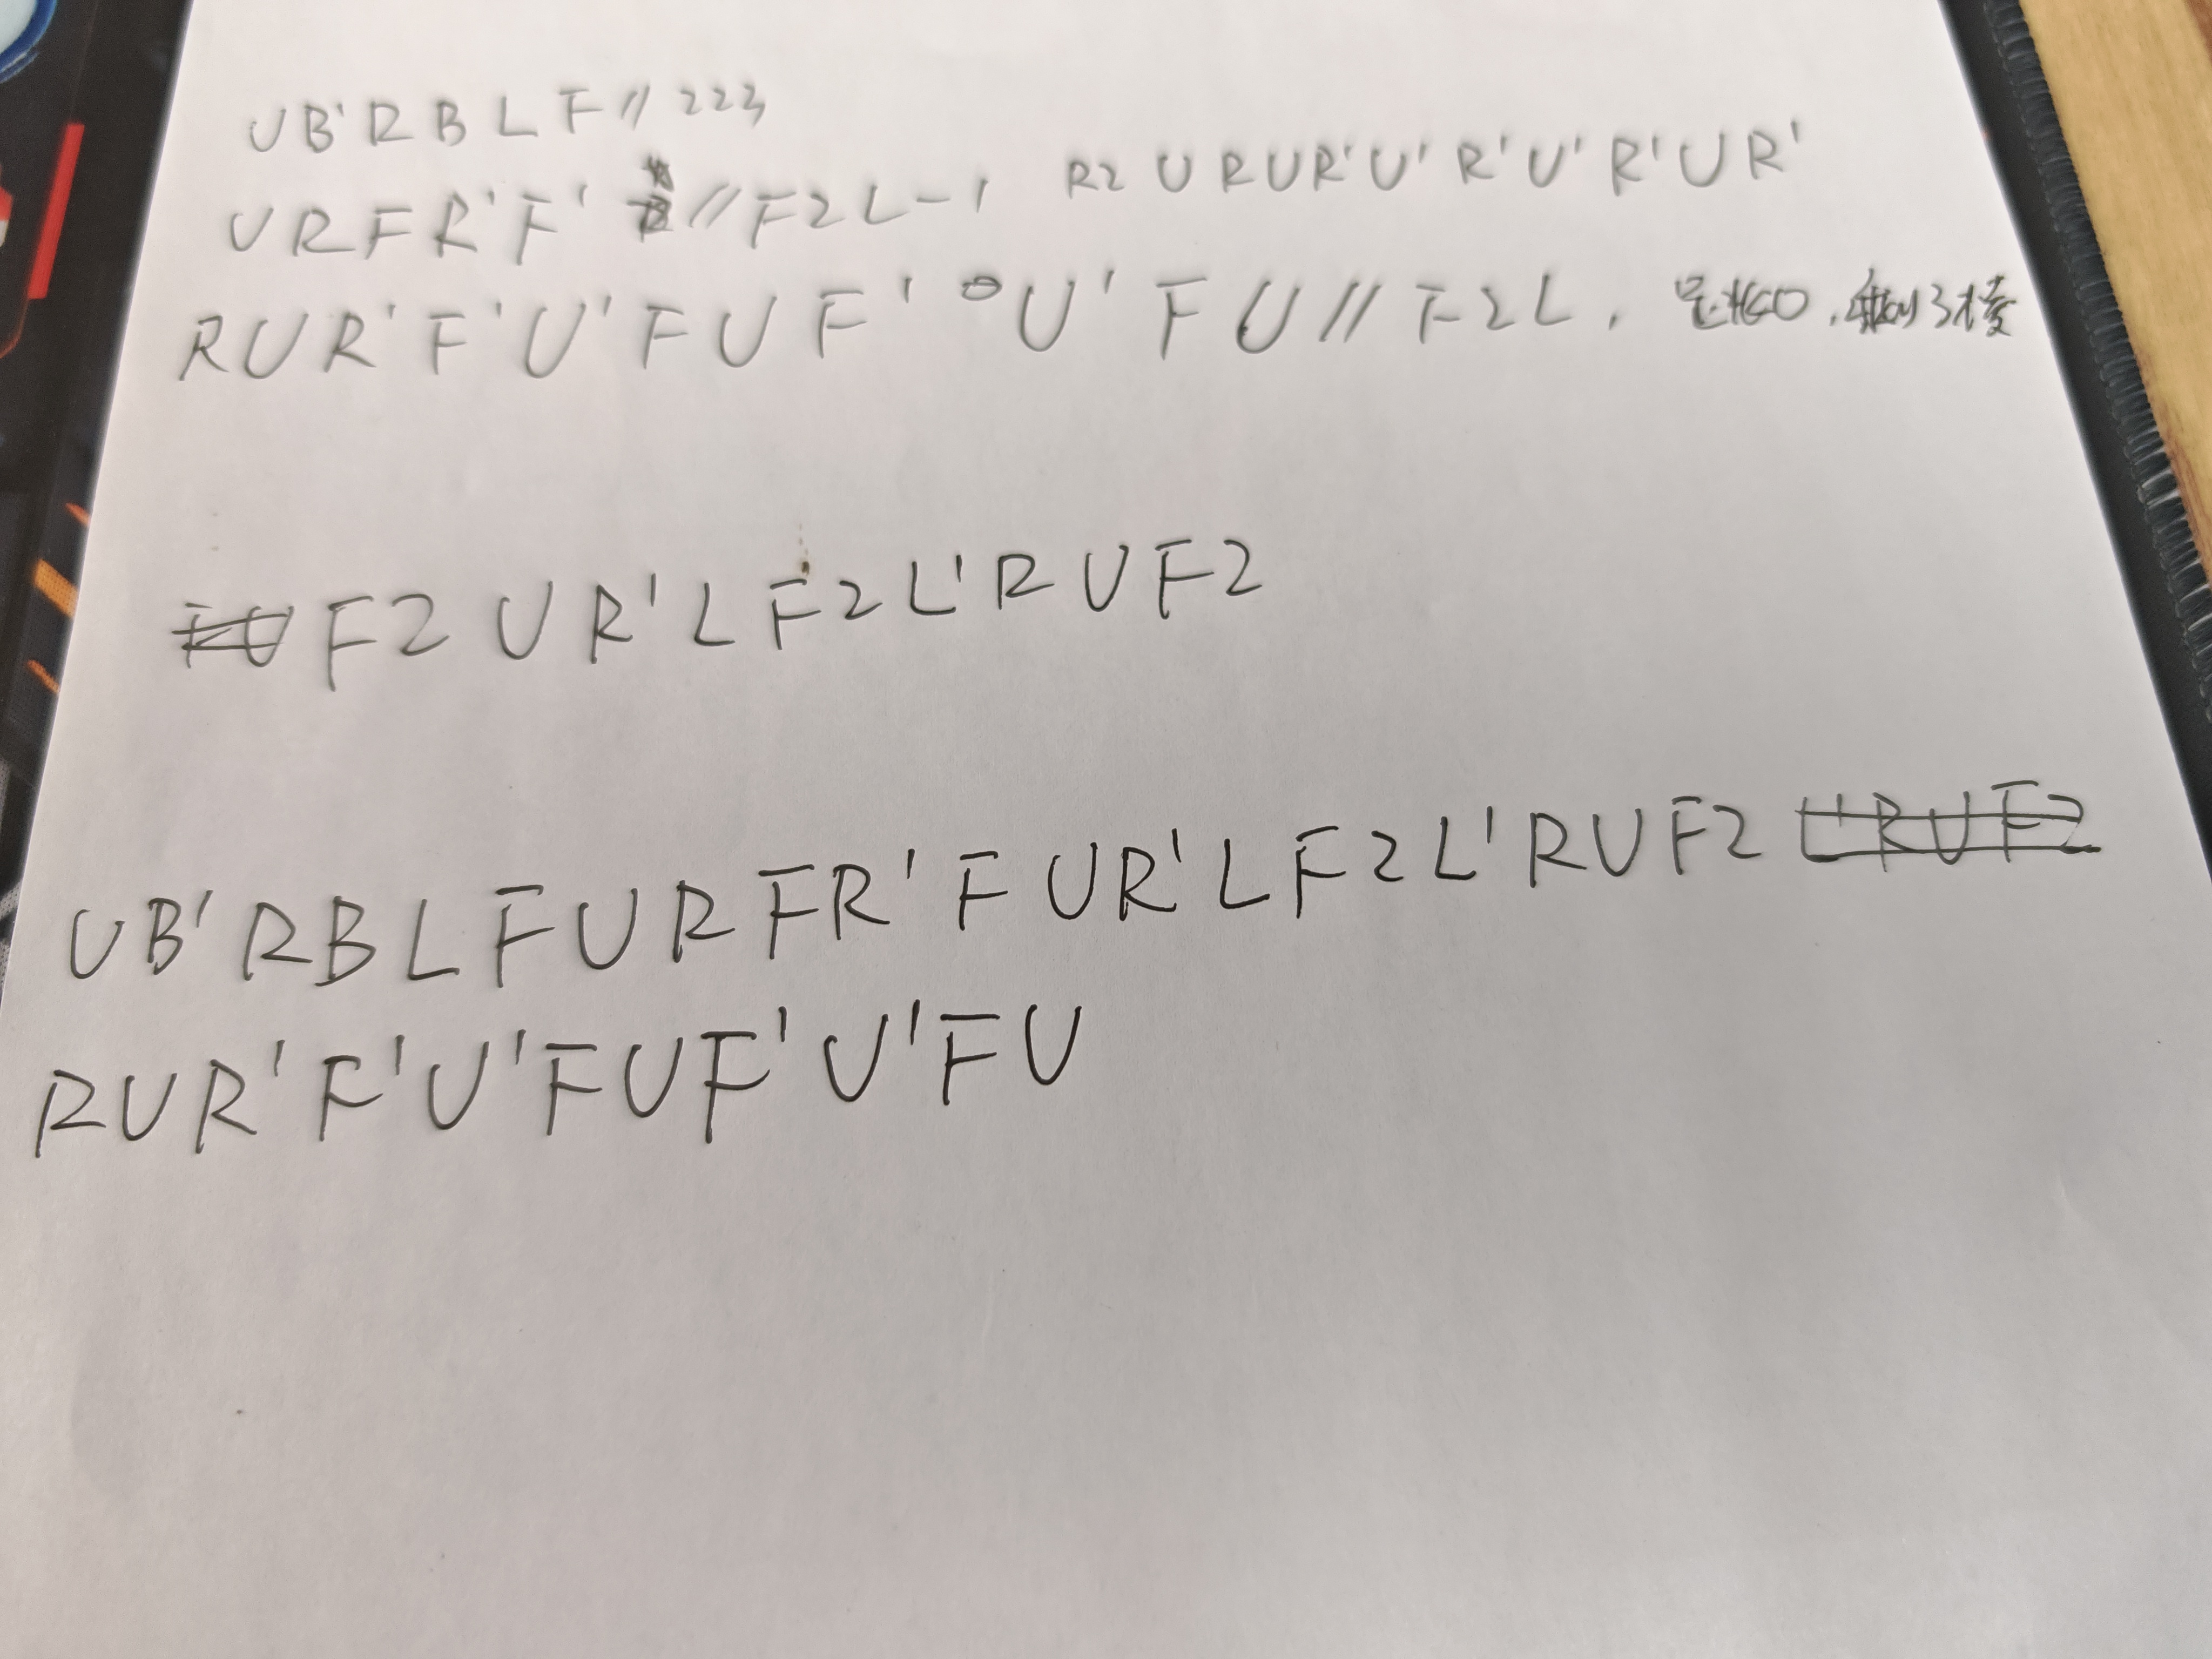 U B' R B L F // 223
U R F R' F' // F2L-1 R2 U R U R' U' R' U' R' U R'
R U R' F' U' F U F' U' F U // F2L, 3棱
F2 U R' L F2 L' R U F2
U B' R B L F U R F R' F U R' L F2 L' R U F2
R U R' F' U' F U F' U' F U